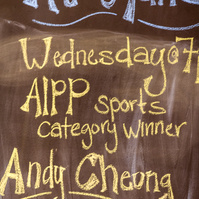 Wednesday @ 7
AIPP sports
category winner
Andy Cheong